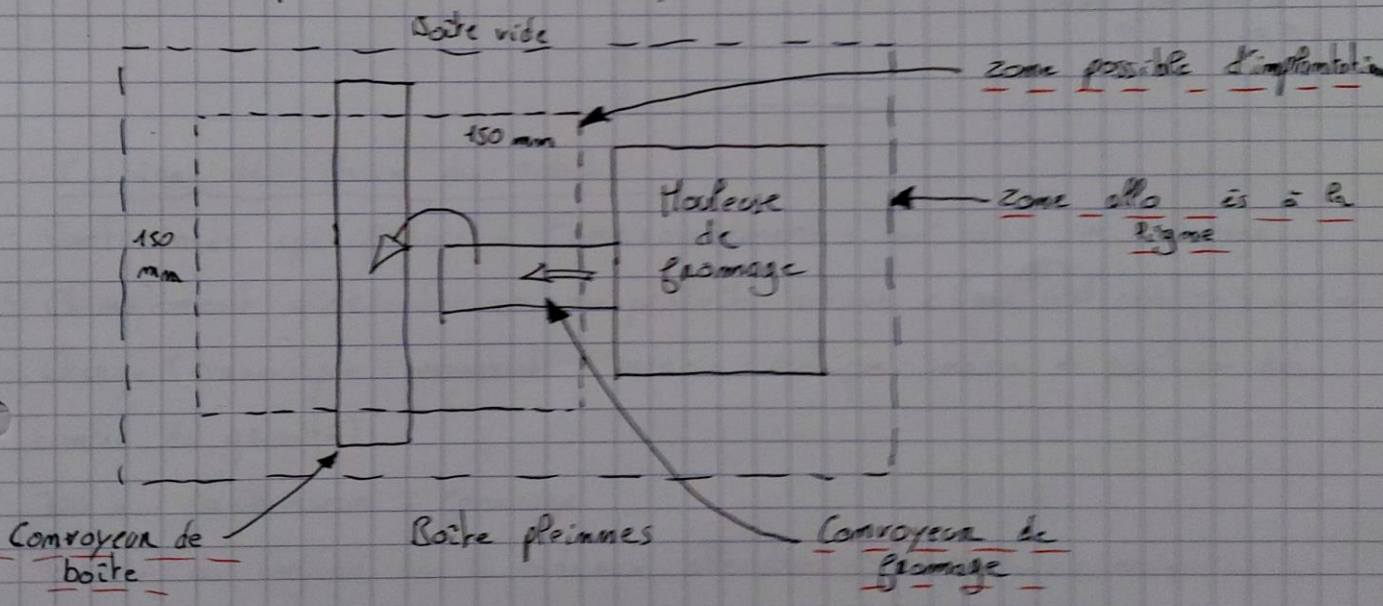 Boîte vide
zone possible d'implantation
150 mm
Mouleuse
de
fromage
zone allo és à la
ligne
150
mm
Convoyeur de
boîte
Boîte pleinnes
Convoyeur de
fromage